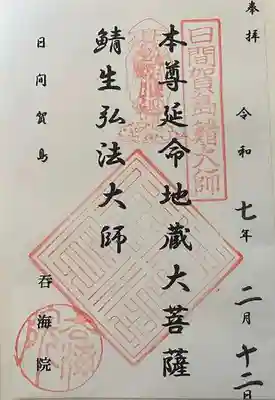 奉拝
令和七年二月十二日
日間賀島鯖大師
本尊延命地蔵大菩薩
鯖生弘法大師
日间賀島
呑海院